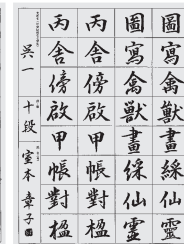 圖寫禽獸畫綵仙靈
圖寫禽獸畫綵仙靈
丙舍傍啟甲帳對楹
丙舍傍啟甲帳對楹
吳一 十段 室本 章子